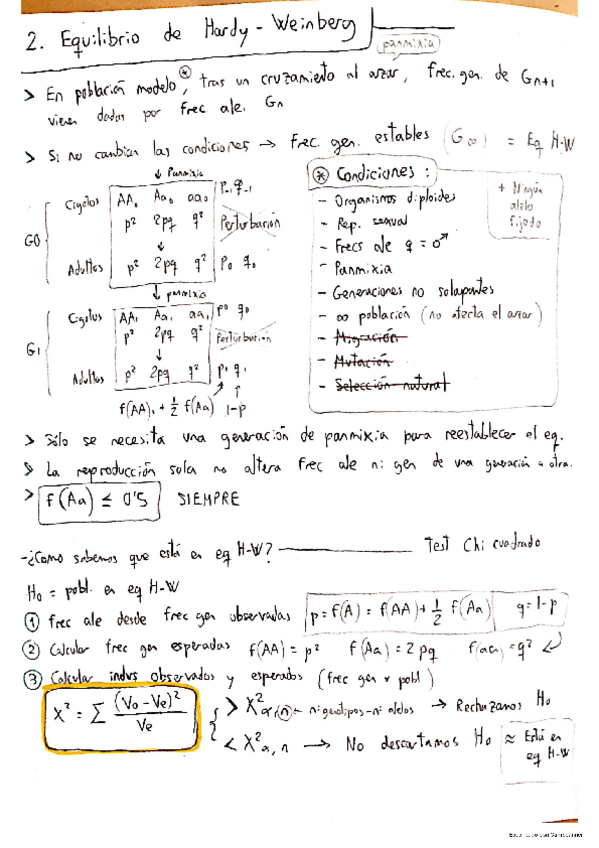 2. Equilibrio de Hardy-Weinberg
panmixia
> En población modelo⊛, tras un cruzamiento al azar, frec. gen. de Gn+1
vienen dadas por frec ale. Gn
> Si no cambian las condiciones → frec. gen. estables (G∞) = Eq H-W
↓ Panmixia
G0
Cigotos AA₀ Aa₀ aa₀ P₋₁ q₋₁
p² 2pq q² Perturbación
↓
Adultos p² 2pq q² P₀ q₀
↓ panmixia
G1
Cigotos AA₁ Aa₁ aa₁ p₀ q₀
p² 2pq q² Perturbación
↓
Adultos p² 2pq q² p₁ q₁
f(AA)₁ + 1/2 f(Aa) 1-p
⊛ Condiciones:
- Organismos diploides
- Rep. sexual
- Frecs ale ♀ = ♂
- Panmixia
- Generaciones no solapantes
- ∞ población (no afecta el azar)
- Migración
- Mutación
- Selección natural
+ Ningún
alelo
fijado
> Sólo se necesita una generación de panmixia para reestablecer el eq.
> La reproducción sola no altera frec ale ni gen de una generación a otra.
> f(Aa) ≤ 0'5 SIEMPRE
-¿Como sabemos que está en eq H-W? Test Chi cuadrado
H₀ = pobl. en eq H-W
① frec ale desde frec gen observadas p = f(A) = f(AA) + 1/2 f(Aa) q = 1-p
② Calcular frec gen esperadas f(AA) = p² f(Aa) = 2pq f(aa) = q²
③ Calcular indvs observados y esperados (frec gen x pobl)
X² = Σ (Vo - Ve)² / Ve
> X²α,n n: genotipos - nº alelos → Rechazamos H₀
< X²α,n → No descartamos H₀ ≈ Está en
eq H-W